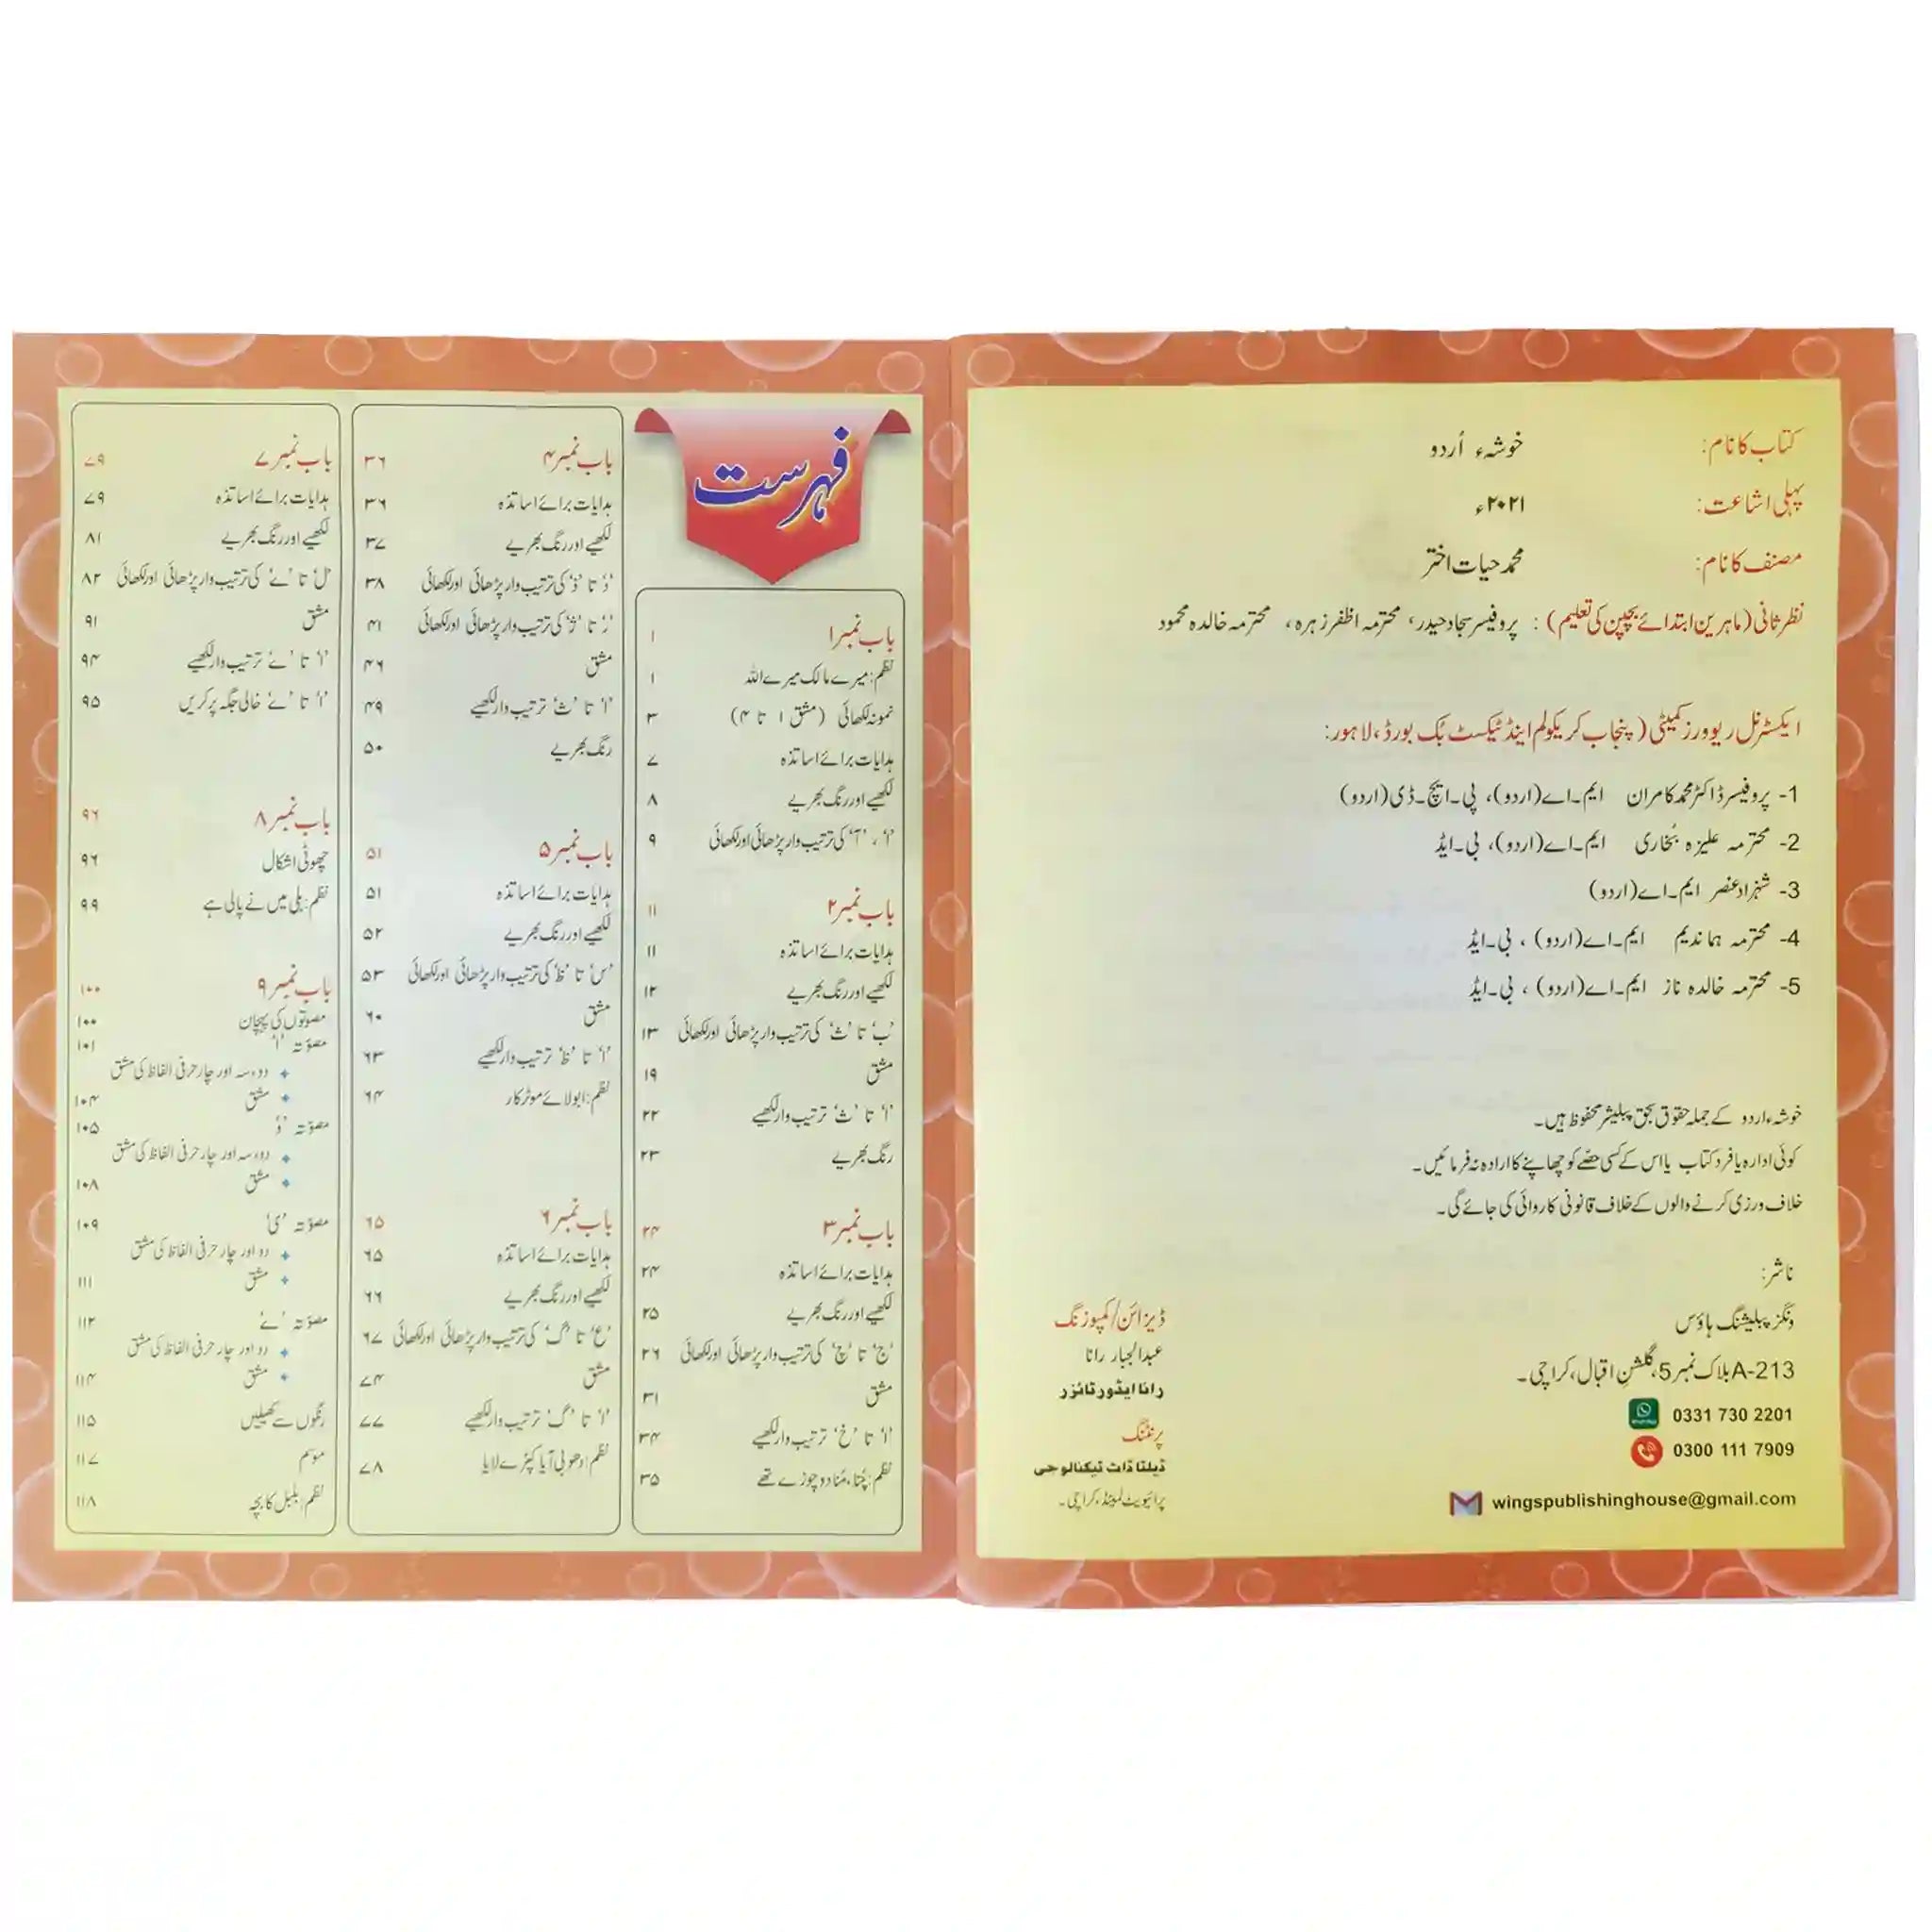 کتاب کا نام: خوشہء اُردو
پہلی اشاعت: ۲۰۲۱ء
مصنف کا نام: محمد حیات اختر
نظر ثانی (ماہرین ابتدائے بچپن کی تعلیم) : پروفیسر سجاد حیدر، محترمہ اظفر زہرہ، محترمہ خالدہ محمود
ایکسٹرنل ریوورز کمیٹی (پنجاب کریکولم اینڈ ٹیکسٹ بُک بورڈ، لاہور:
1- پروفیسر ڈاکٹر محمد کامران ایم۔اے (اردو)، پی۔ایچ۔ڈی (اردو)
2- محترمہ علیزہ بُخاری ایم۔اے (اردو)، بی۔ایڈ
3- شہزاد عنصر ایم۔اے (اردو)
4- محترمہ ہما ندیم ایم۔اے (اردو) ، بی۔ایڈ
5- محترمہ خالدہ ناز ایم۔اے (اردو) ، بی۔ایڈ
خوشہء اردو کے جملہ حقوق بحق پبلیشر محفوظ ہیں۔
کوئی ادارہ یا فرد کتاب یا اس کے کسی حصّے کو چھاپنے کا ارادہ نہ فرمائیں۔
خلاف ورزی کرنے والوں کے خلاف قانونی کاروائی کی جائے گی۔
ناشر:
ونگز پبلیشنگ ہاؤس
A-213 بلاک نمبر 5، گلشنِ اقبال، کراچی۔
0331 730 2201
0300 111 7909
wingspublishinghouse@gmail.com
ڈیزائن/کمپوزنگ
عبدالجبار رانا
رانا ایڈورٹائزر
پرنٹنگ
ڈیلٹا ڈاٹ ٹیکنالوجی
پرائیویٹ لمیٹڈ، کراچی۔
فہرست
باب نمبر ۱ ۱
نظم: میرے مالک میرے اللہ ۱
نمونہ لکھائی (مشق ۱ تا ۴) ۳
ہدایات برائے اساتذہ ۷
لکھیے اور رنگ بھریے ۸
'ا'، 'آ' کی ترتیب وار پڑھائی اور لکھائی ۹
باب نمبر ۲ ۱۱
ہدایات برائے اساتذہ ۱۱
لکھیے اور رنگ بھریے ۱۲
'ب' تا 'ث' کی ترتیب وار پڑھائی اور لکھائی ۱۳
مشق ۱۹
'ا' تا 'ث' ترتیب وار لکھیے ۲۲
رنگ بھریے ۲۳
باب نمبر ۳ ۲۴
ہدایات برائے اساتذہ ۲۴
لکھیے اور رنگ بھریے ۲۵
'ج' تا 'خ' کی ترتیب وار پڑھائی اور لکھائی ۲۶
مشق ۳۱
'ا' تا 'خ' ترتیب وار لکھیے ۳۴
نظم: چُنا، مُنا دو چوزے تھے ۳۵
باب نمبر ۴ ۳۶
ہدایات برائے اساتذہ ۳۶
لکھیے اور رنگ بھریے ۳۷
'د' تا 'ذ' کی ترتیب وار پڑھائی اور لکھائی ۳۸
'ر' تا 'ژ' کی ترتیب وار پڑھائی اور لکھائی ۴۱
مشق ۴۶
'ا' تا 'ث' ترتیب وار لکھیے ۴۹
رنگ بھریے ۵۰
باب نمبر ۵ ۵۱
ہدایات برائے اساتذہ ۵۱
لکھیے اور رنگ بھریے ۵۲
'س' تا 'ظ' کی ترتیب وار پڑھائی اور لکھائی ۵۳
مشق ۶۰
'ا' تا 'ظ' ترتیب وار لکھیے ۶۳
نظم: ابو لائے موٹر کار ۶۴
باب نمبر ۶ ۶۵
ہدایات برائے اساتذہ ۶۵
لکھیے اور رنگ بھریے ۶۶
'ع' تا 'گ' کی ترتیب وار پڑھائی اور لکھائی ۶۷
مشق ۷۴
'ا' تا 'گ' ترتیب وار لکھیے ۷۷
نظم: دھوبی آیا کپڑے لایا ۷۸
باب نمبر ۷ ۷۹
ہدایات برائے اساتذہ ۷۹
لکھیے اور رنگ بھریے ۸۱
'ل' تا 'ے' کی ترتیب وار پڑھائی اور لکھائی ۸۲
مشق ۹۱
'ا' تا 'ے' ترتیب وار لکھیے ۹۴
'ا' تا 'ے' خالی جگہ پر کریں ۹۵
باب نمبر ۸ ۹۶
چھوٹی اشکال ۹۶
نظم: بلی میں نے پالی ہے ۹۹
باب نمبر ۹ ۱۰۰
مصوتوں کی پہچان ۱۰۰
مصوّتہ 'ا' ۱۰۱
دو، سہ اور چار حرفی الفاظ کی مشق
مشق ۱۰۴
مصوّتہ 'و' ۱۰۵
دو، سہ اور چار حرفی الفاظ کی مشق
مشق ۱۰۸
مصوّتہ 'ی' ۱۰۹
دو اور چار حرفی الفاظ کی مشق
مشق ۱۱۱
مصوّتہ 'ے' ۱۱۲
دو اور چار حرفی الفاظ کی مشق
مشق ۱۱۴
رنگوں سے کھیلیں ۱۱۵
موسم ۱۱۷
نظم: بلبل کا بچہ ۱۱۸